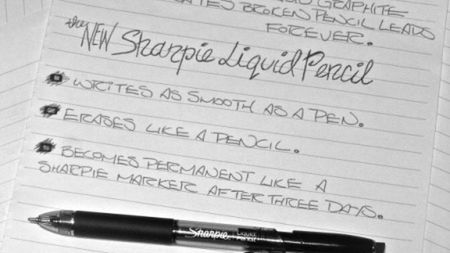 GRAPHITE
BROKEN PENCIL LEADS
FOREVER.
the NEW Sharpie Liquid Pencil
WRITES AS SMOOTH AS A PEN.
ERASES LIKE A PENCIL.
BECOMES PERMANENT LIKE A
SHARPIE MARKER AFTER THREE DAYS.
Sharpie LIQUID PENCIL